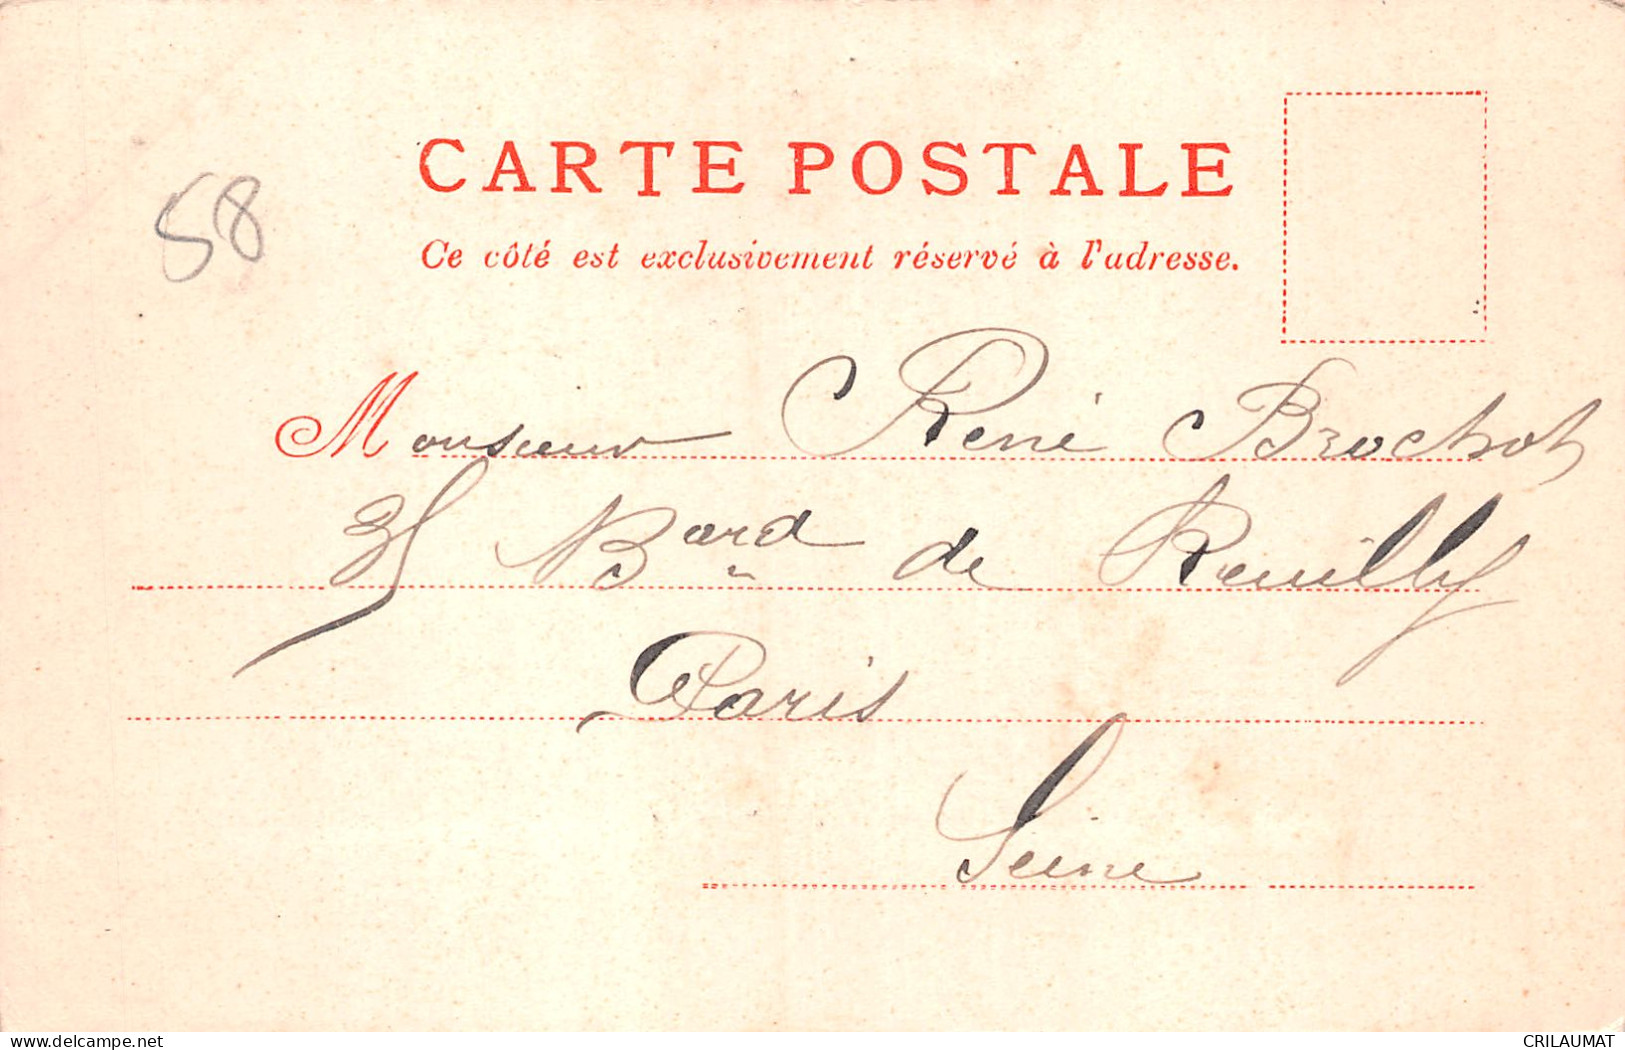 CARTE POSTALE
58
Ce côté est exclusivement réservé à l'adresse.
Monsieur René Brochot
35 Bard de Reuilly
Paris
Seine
delcampe.net
CRILAUMAT